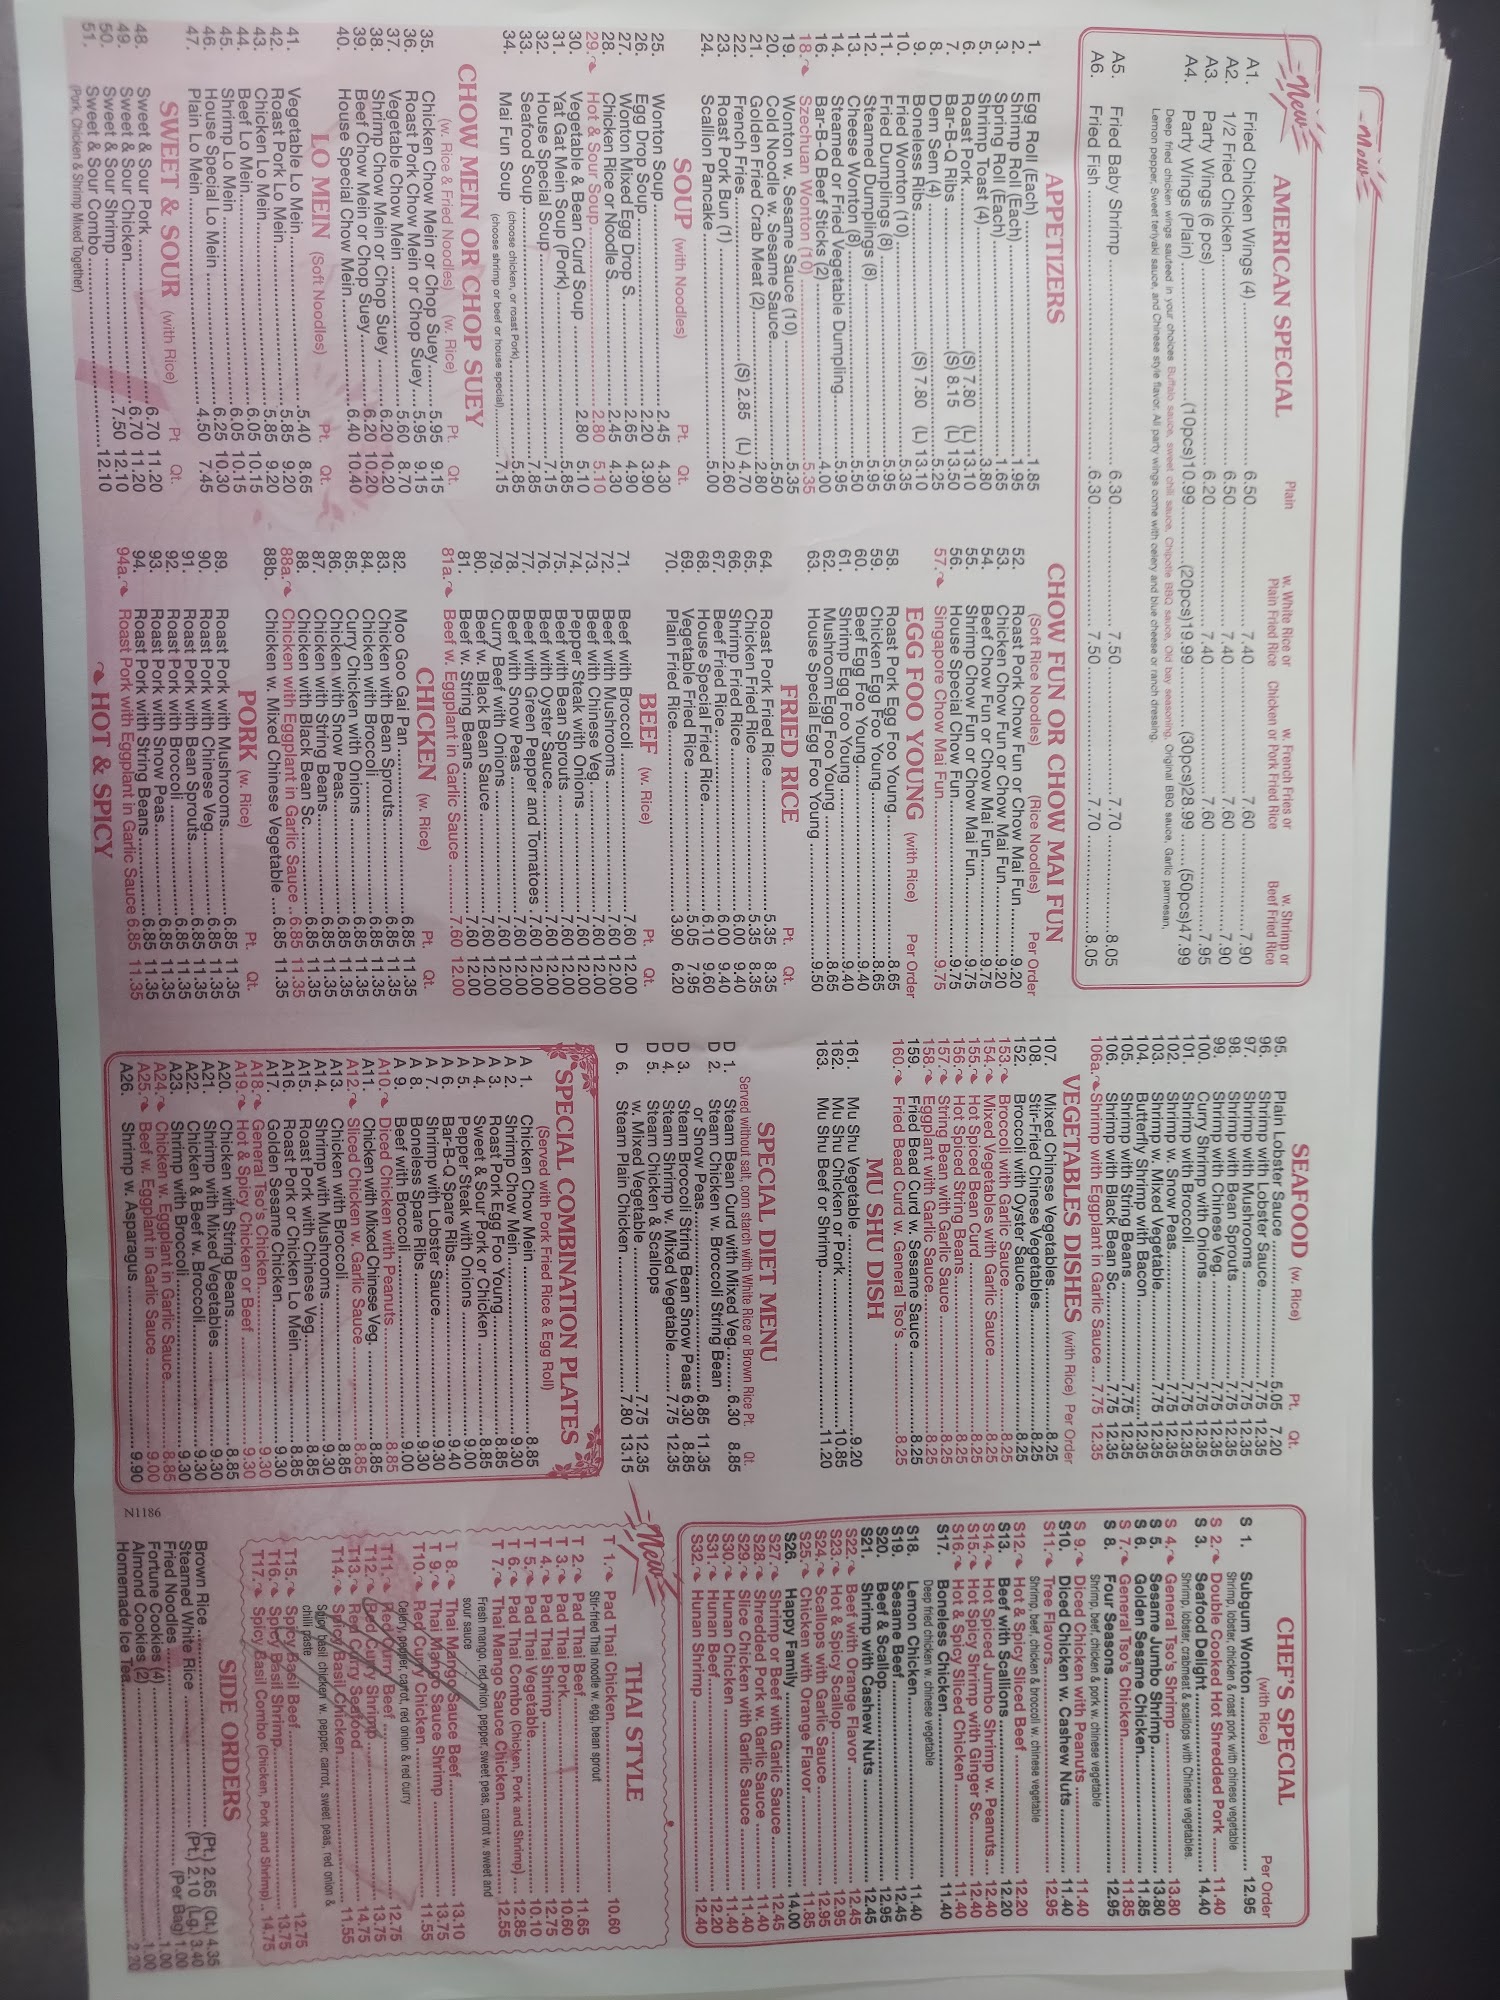 New
New
AMERICAN SPECIAL
Plain
w. White Rice or Plain Fried Rice
w. French Fries or Chicken or Pork Fried Rice
w. Shrimp or Beef Fried Rice
A1. Fried Chicken Wings (4) 6.50 7.40 7.60 7.90
A2. 1/2 Fried Chicken 6.50 7.40 7.60 7.90
A3. Party Wings (6 pcs) 6.20 7.40 7.60 7.95
A4. Party Wings (Plain) (10pcs)10.99 (20pcs)19.99 (30pcs)28.99 (50pcs)47.99
Deep fried chicken wings sauteed in your choices Buffalo sauce, sweet chili sauce, Chipotle BBQ sauce, Old bay seasoning, Original BBQ sauce, Garlic parmesan,
Lemon pepper, Sweet teriyaki sauce, and Chinese style flavor. All party wings come with celery and blue cheese or ranch dressing.
A5. Fried Baby Shrimp 6.30 7.50 7.70 8.05
A6. Fried Fish 6.30 7.50 7.70 8.05
APPETIZERS
1. Egg Roll (Each) 1.85
2. Shrimp Roll (Each) 1.95
3. Spring Roll (Each) 1.65
5. Shrimp Toast (4) 3.80
6. Roast Pork (S) 7.80 (L) 13.10
7. Bar-B-Q Ribs (S) 8.15 (L) 13.50
8. Dem Sem (4) 5.25
9. Boneless Ribs (S) 7.80 (L) 13.10
10. Fried Wonton (10) 5.35
11. Fried Dumplings (8) 5.95
12. Steamed Dumplings (8) 5.95
13. Cheese Wonton (8) 5.50
14. Steamed or Fried Vegetable Dumpling 5.95
16. Bar-B-Q Beef Sticks (2) 4.00
18. Szechuan Wonton (10) 5.35
19. Wonton w. Sesame Sauce (10) 5.35
20. Cold Noodle w. Sesame Sauce 5.50
21. Golden Fried Crab Meat (2) 2.80
22. French Fries (S) 2.85 (L) 4.70
23. Roast Pork Bun (1) 2.60
24. Scallion Pancake 5.00
SOUP (with Noodles) Pt. Qt.
25. Wonton Soup 2.45 4.30
26. Egg Drop Soup 2.20 3.90
27. Wonton Mixed Egg Drop S. 2.65 4.90
28. Chicken Rice or Noodle S. 2.45 4.30
29. Hot & Sour Soup 2.80 5.10
30. Vegetable & Bean Curd Soup 2.80 5.10
31. Yat Gat Mein Soup (Pork) 5.85
32. House Special Soup 7.15
33. Seafood Soup 7.85
34. Mai Fun Soup (choose chicken, or roast Pork) 5.85
(choose shrimp or beef or house special) 7.15
CHOW MEIN OR CHOP SUEY
(w. Rice & Fried Noodles) (w. Rice) Pt. Qt.
35. Chicken Chow Mein or Chop Suey 5.95 9.15
36. Roast Pork Chow Mein or Chop Suey 5.95 9.15
37. Vegetable Chow Mein 5.60 8.70
38. Shrimp Chow Mein or Chop Suey 6.20 10.20
39. Beef Chow Mein or Chop Suey 6.20 10.20
40. House Special Chow Mein 6.40 10.40
LO MEIN (Soft Noodles) Pt. Qt.
41. Vegetable Lo Mein 5.40 8.65
42. Roast Pork Lo Mein 5.85 9.20
43. Chicken Lo Mein 5.85 9.20
44. Beef Lo Mein 6.05 10.15
45. Shrimp Lo Mein 6.05 10.15
46. House Special Lo Mein 6.25 10.30
47. Plain Lo Mein 4.50 7.45
SWEET & SOUR (with Rice) Pt Qt.
48. Sweet & Sour Pork 6.70 11.20
49. Sweet & Sour Chicken 6.70 11.20
50. Sweet & Sour Shrimp 7.50 12.10
51. Sweet & Sour Combo 12.10
(Pork, Chicken & Shrimp Mixed Together)
CHOW FUN OR CHOW MAI FUN
(Soft Rice Noodles) (Rice Noodles) Per Order
52. Roast Pork Chow Fun or Chow Mai Fun 9.20
53. Chicken Chow Fun or Chow Mai Fun 9.20
54. Beef Chow Fun or Chow Mai Fun 9.75
55. Shrimp Chow Fun or Chow Mai Fun 9.75
56. House Special Chow Fun 9.75
57. Singapore Chow Mai Fun 9.75
EGG FOO YOUNG (with Rice) Per Order
58. Roast Pork Egg Foo Young 8.65
59. Chicken Egg Foo Young 8.65
60. Beef Egg Foo Young 9.40
61. Shrimp Egg Foo Young 9.40
62. Mushroom Egg Foo Young 8.65
63. House Special Egg Foo Young 9.50
FRIED RICE Pt. Qt.
64. Roast Pork Fried Rice 5.35 8.35
65. Chicken Fried Rice 5.35 8.35
66. Shrimp Fried Rice 6.00 9.40
67. Beef Fried Rice 6.00 9.40
68. House Special Fried Rice 6.10 9.60
69. Vegetable Fried Rice 5.05 7.95
70. Plain Fried Rice 3.90 6.20
BEEF (w. Rice) Pt. Qt.
71. Beef with Broccoli 7.60 12.00
72. Beef with Mushrooms 7.60 12.00
73. Beef with Chinese Veg. 7.60 12.00
74. Pepper Steak with Onions 7.60 12.00
75. Beef with Bean Sprouts 7.60 12.00
76. Beef with Oyster Sauce 7.60 12.00
77. Beef with Green Pepper and Tomatoes 7.60 12.00
78. Beef with Snow Peas 7.60 12.00
79. Curry Beef with Onions 7.60 12.00
80. Beef w. Black Bean Sauce 7.60 12.00
81. Beef w. String Beans 7.60 12.00
81a. Beef w. Eggplant in Garlic Sauce 7.60 12.00
CHICKEN (w. Rice) Pt. Qt.
82. Moo Goo Gai Pan 6.85 11.35
83. Chicken with Bean Sprouts 6.85 11.35
84. Chicken with Broccoli 6.85 11.35
85. Curry Chicken with Onions 6.85 11.35
86. Chicken with Snow Peas 6.85 11.35
87. Chicken with String Beans 6.85 11.35
88. Chicken with Black Bean Sc. 6.85 11.35
88a. Chicken with Eggplant in Garlic Sauce 6.85 11.35
88b. Chicken w. Mixed Chinese Vegetable 6.85 11.35
PORK (w. Rice) Pt. Qt.
89. Roast Pork with Mushrooms 6.85 11.35
90. Roast Pork with Chinese Veg. 6.85 11.35
91. Roast Pork with Bean Sprouts 6.85 11.35
92. Roast Pork with Broccoli 6.85 11.35
93. Roast Pork with Snow Peas 6.85 11.35
94. Roast Pork with String Beans 6.85 11.35
94a. Roast Pork with Eggplant in Garlic Sauce 6.85 11.35
HOT & SPICY
SEAFOOD (w. Rice) Pt. Qt.
95. Plain Lobster Sauce 5.05 7.20
96. Shrimp with Lobster Sauce 7.75 12.35
97. Shrimp with Mushrooms 7.75 12.35
98. Shrimp with Bean Sprouts 7.75 12.35
99. Shrimp with Chinese Veg. 7.75 12.35
100. Curry Shrimp with Onions 7.75 12.35
101. Shrimp with Broccoli 7.75 12.35
102. Shrimp w. Snow Peas 7.75 12.35
103. Shrimp w. Mixed Vegetable 7.75 12.35
104. Butterfly Shrimp with Bacon 12.35
105. Shrimp with String Beans 7.75 12.35
106. Shrimp with Black Bean Sc. 7.75 12.35
106a. Shrimp with Eggplant in Garlic Sauce 7.75 12.35
VEGETABLES DISHES (with Rice) Per Order
107. Mixed Chinese Vegetables 8.25
108. Stir-Fried Chinese Vegetables 8.25
152. Broccoli with Oyster Sauce 8.25
153. Broccoli with Garlic Sauce 8.25
154. Mixed Vegetables with Garlic Sauce 8.25
155. Hot Spiced Bean Curd 8.25
156. Hot Spiced String Beans 8.25
157. String Bean with Garlic Sauce 8.25
158. Eggplant with Garlic Sauce 8.25
159. Fried Bead Curd w. Sesame Sauce 8.25
160. Fried Bead Curd w. General Tso's 8.25
MU SHU DISH
161. Mu Shu Vegetable 9.20
162. Mu Shu Chicken or Pork 10.85
163. Mu Shu Beef or Shrimp 11.20
SPECIAL DIET MENU
Served without salt, corn starch with White Rice or Brown Rice Pt. Qt.
D 1. Steam Bean Curd with Mixed Veg. 6.30 8.85
D 2. Steam Chicken w. Broccoli String Bean
or Snow Peas 6.85 11.35
D 3. Steam Broccoli String Bean Snow Peas 6.30 8.85
D 4. Steam Shrimp w. Mixed Vegetable 7.75 12.35
D 5. Steam Chicken & Scallops
w. Mixed Vegetable 7.75 12.35
D 6. Steam Plain Chicken 7.80 13.15
SPECIAL COMBINATION PLATES
(Served with Pork Fried Rice & Egg Roll)
A 1. Chicken Chow Mein 8.85
A 2. Shrimp Chow Mein 9.30
A 3. Roast Pork Egg Foo Young 8.85
A 4. Sweet & Sour Pork or Chicken 8.85
A 5. Pepper Steak with Onions 9.00
A 6. Bar-B-Q Spare Ribs 9.40
A 7. Shrimp with Lobster Sauce 9.30
A 8. Boneless Spare Ribs 9.30
A 9. Beef with Broccoli 9.00
A10. Diced Chicken with Peanuts 8.85
A11. Chicken with Mixed Chinese Veg. 8.85
A12. Sliced Chicken w. Garlic Sauce 8.85
A13. Chicken with Broccoli 8.85
A14. Shrimp with Mushrooms 9.30
A15. Roast Pork with Chinese Veg. 8.85
A16. Roast Pork or Chicken Lo Mein 8.85
A17. Golden Sesame Chicken 9.30
A18. General Tso's Chicken 9.30
A19. Hot & Spicy Chicken or Beef 9.30
A20. Chicken with String Beans 8.85
A21. Shrimp with Mixed Vegetables 9.30
A22. Chicken & Beef w. Broccoli 9.30
A23. Shrimp with Broccoli 9.30
A24. Chicken w. Eggplant in Garlic Sauce 8.85
A25. Beef w. Eggplant in Garlic Sauce 9.00
A26. Shrimp w. Asparagus 9.90
N1186
CHEF'S SPECIAL
(with Rice) Per Order
S 1. Subgum Wonton 12.95
Shrimp, lobster, chicken & roast pork with chinese vegetable
S 2. Double Cooked Hot Shredded Pork 11.40
S 3. Seafood Delight 14.40
Shrimp, lobster, crabmeat & scallops with Chinese vegetables.
S 4. General Tso's Shrimp 13.80
S 5. Sesame Jumbo Shrimp 13.80
S 6. Golden Sesame Chicken 11.85
S 7. General Tso's Chicken 11.85
S 8. Four Seasons 12.95
Shrimp, beef, chicken & pork w. chinese vegetable
S 9. Diced Chicken with Peanuts 11.40
S10. Diced Chicken w. Cashew Nuts 11.40
S11. Tree Flavors 12.95
Shrimp, beef, chicken & broccoli w. chinese vegetable
S12. Hot & Spicy Sliced Beef 12.20
S13. Beef with Scallions 12.20
S14. Hot Spiced Jumbo Shrimp w. Peanuts 12.40
S15. Hot Spicy Shrimp with Ginger Sc. 12.40
S16. Hot & Spicy Sliced Chicken 11.40
S17. Boneless Chicken 11.40
Deep fried chicken w. chinese vegetable
S18. Lemon Chicken 11.40
S19. Sesame Beef 12.45
S20. Beef & Scallop 12.95
S21. Shrimp with Cashew Nuts 12.45
S22. Beef with Orange Flavor 12.45
S23. Hot & Spicy Scallop 12.95
S24. Scallops with Garlic Sauce 12.95
S25. Chicken with Orange Flavor 11.85
S26. Happy Family 14.00
S27. Shrimp or Beef with Garlic Sauce 12.45
S28. Shredded Pork w. Garlic Sauce 11.40
S29. Slice Chicken with Garlic Sauce 11.40
S30. Hunan Chicken 11.40
S31. Hunan Beef 12.20
S32. Hunan Shrimp 12.40
New
THAI STYLE
T 1. Pad Thai Chicken 10.60
Stir-fried Thai noodle w. egg, bean sprout
T 2. Pad Thai Beef 11.65
T 3. Pad Thai Pork 10.60
T 4. Pad Thai Shrimp 12.75
T 5. Pad Thai Vegetable 10.10
T 6. Pad Thai Combo (Chicken, Pork and Shrimp) 12.85
T 7. Thai Mango Sauce Chicken 12.55
Fresh mango, red onion, pepper, sweet peas, carrot w. sweet and
sour sauce
T 8. Thai Mango Sauce Beef 13.10
T 9. Thai Mango Sauce Shrimp 13.75
T10. Red Curry Chicken 11.55
Celery, pepper, carrot, red onion & red curry
T11. Red Curry Beef 12.75
T12. Red Curry Shrimp 13.75
T13. Red Curry Seafood 14.75
T14. Spicy Basil Chicken 11.55
Spicy basil chicken w. pepper, carrot, sweet peas, red onion &
chili paste
T15. Spicy Basil Beef 12.75
T16. Spicy Basil Shrimp 13.75
T17. Spicy Basil Combo (Chicken, Pork and Shrimp) 14.75
SIDE ORDERS
Brown Rice (Pt.) 2.65 (Qt.) 4.35
Steamed White Rice (Pt.) 2.10 (Lg.) 3.40
Fried Noodles (Per Bag) 1.00
Fortune Cookies (4) 1.00
Almond Cookies (2) 1.00
Homemade Ice Tea 2.20